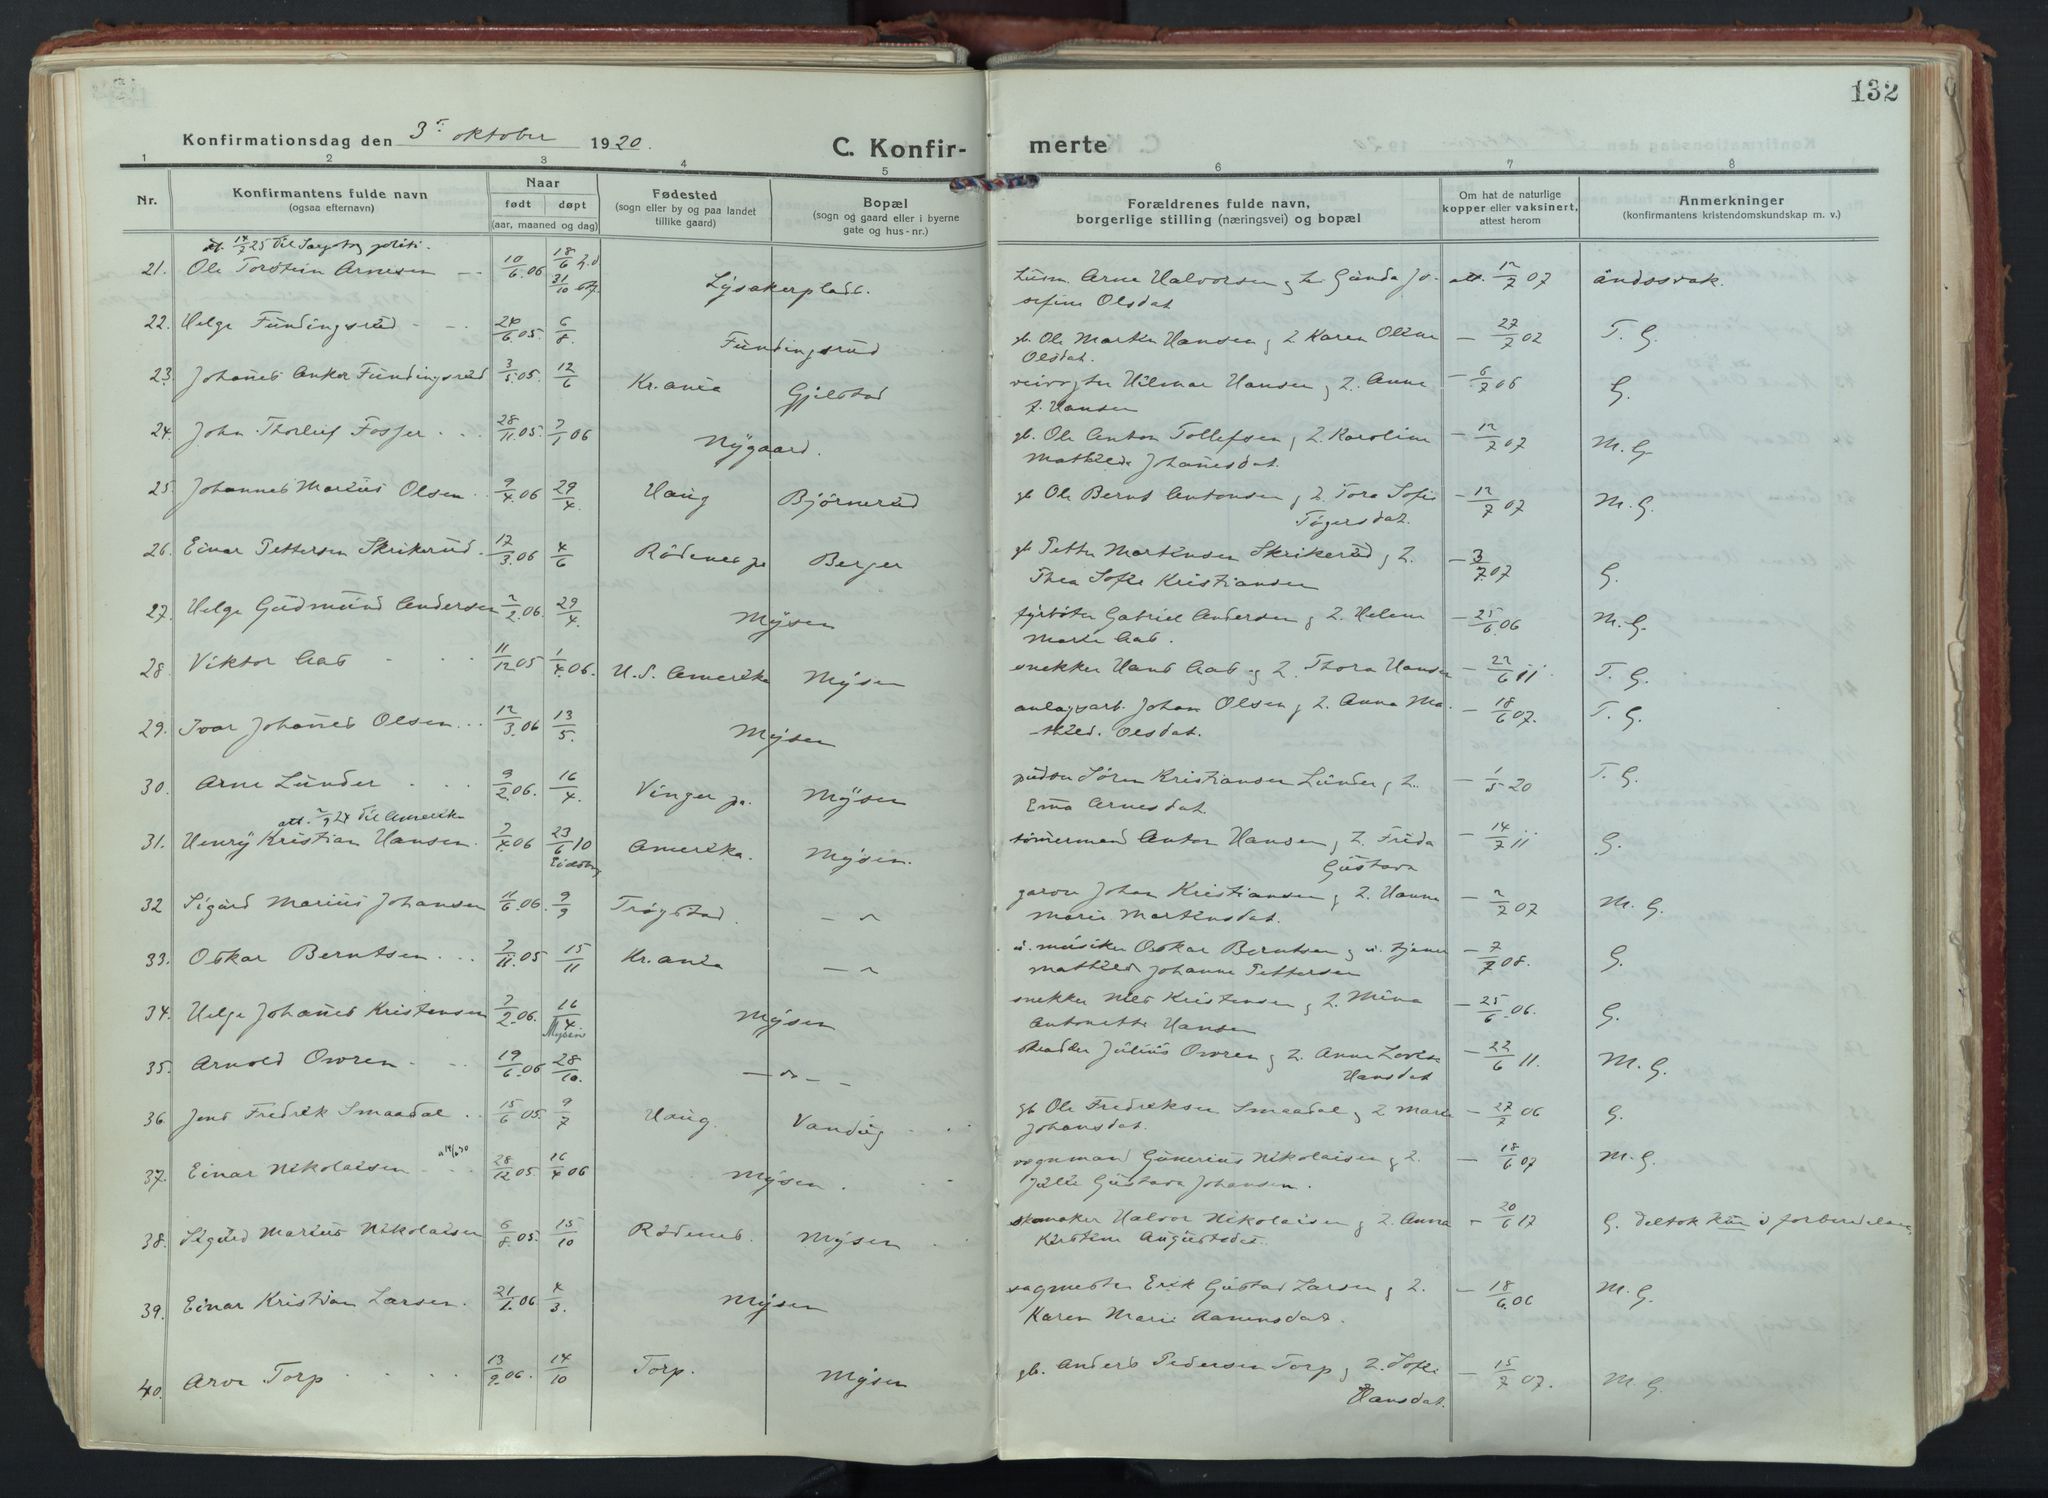 132
Konfirmationsdag den 3. oktober 1920.
C. Konfirmerte
1 2 3 4 5 6 7 8
Nr.
Konfirmantens fulde navn
(ogsaa efternavn)
Naar
født døpt
(aar, maaned og dag)
Fødested
(sogn eller by og paa landet
tillike gaard)
Bopæl
(sogn og gaard eller i byerne
gate og hus-nr.)
Forældrenes fulde navn,
borgerlige stilling (næringsvei) og bopæl
Om hat de naturlige
kopper eller vaksinert,
attest herom
Anmerkninger
(konfirmantens kristendomskundskap m. v.)
14/7 25 til politi.
21. Ole Torstein Arnesen 10/6 06 18/6 31/10 Lysakerplads. Arne Halvorsen Gunda Jo- att. 12/7 07 åndssvak.
sefine Olsdat.
22. Helge Fundingsrud 24/6 05. 6/8. Fundingsrud gb. Ole Martin Hansen og h. Karen Oline — 27/7 02 T. G.
Olsdat.
23. Johannes Anker Fundingsrud 3/5 05. 12/6 Kr.ania Gjelstad veivogter Hilmar Hansen og h. Anna — 6/7 06 G.
f. Hansen
24. John Thorleif Fosser 28/11 05. 7/1 06 Nygaard. gb. Ole Anton Tollefsen og h. Karoline — 12/7 07 M. G.
Mathilde Johannesdat.
25. Johannes Marius Olsen 9/4 06 29/4. Haug Bjørnerud gb Ole Bernt Antonsen og h. Tora Sofie — 12/7 07 M. G.
Tøgersdat.
26. Einar Pettersen Skrikerud. 17/3 06 4/6 Rødenes pr Berger gb Petter Martinsen Skrikerud og h. — 3/7 07 G.
Thea Sofie Kristiansen
27. Helge Gudmund Andersen 2/2. 06. 29/4. Mysen fyrbøter Gabriel Andersen og h. Helene — 25/6 06 M. G.
Marie Aas.
28. Viktor Aas 11/12 05 1/4. 06. U. S. Amerika Mysen snekker Hans Aas og h. Thora Hansen — 22/6 11. T. G.
29. Ivar Johannes Olsen 12/3. 06 13/5. Mysen anlægsarb. Johan Olsen og h. Anna Ma- — 18/6 07. T. G.
thild. Olsdat.
30. Arne Lunder 9/2. 06. 16/4. Vinger pr. Mysen pudser Søren Kristiansen Lunder og h. — 1/5 20 T. G.
Ema Arnesdat.
att. 2/9 24 til Amerika
31. Henry Kristian Hansen. 7/4 06 23/6 10 Amerika. Mysen. tømermand Anton Hansen og h. Frida — 14/7 11 G.
Eidsberg
Gustava
32 Sigurd Marius Johansen 11/6 06. 9/9 Trøgstad. — " garver Johan Kristiansen og h. Hanna — 2/7 07 M. G.
Marie Martinsdat.
33. Oskar Berntsen 7/11. 05 15/11 Kr.ania — " u. musiker Oskar Berntsen og u. tjener — 7/7 08. G.
Mathilde Johanne Pettersen
34. Helge Johannes Kristensen 7/2. 06. 16/4 Mysen snekker Nils Kristensen og h. Mina — 25/6. 06. G.
Mysen
Antonette Hansen
35. Arnold Owren 19/6. 06 28/10. — " — — skrædder Julius Owren og h. Anne Lovise — 22/6 11. M. G.
Hansdat
36. Jens Fredrik Smaadal 15/6 05. 9/7 Haug. Vandug gb Ole Fredriksen Smaadal og h Marie — 27/7 06 G.
Johansdat.
37. Einar Nikolaisen 28/12 05. 16/4 06 Mysen. vognmand Gunerius Nikolaisen og h. — 18/6 07 M. G.
Julie Gustava Johansen.
38. Sigurd Marius Nikolaisen 6/8. 05. 15/10 Rødenes. Mysen skomaker Halvor Nikolaisen og h. Anna — 20/6 17 G. deltok kun i forberedelsen
Kirstine Augustsdat.
39. Einar Kristian Larsen. 21/1. 06 4/3. Mysen sagmester Erik Gustav Larsen og h. — 18/6. 06 M. G.
Karen Marie Aanensdat.
40. Arve Torp 13/9. 06. 14/10 Torp. Mysen gb. Anders Pedersen Torp og h. Sofie — 15/7 07. M. G.
Hansdat.